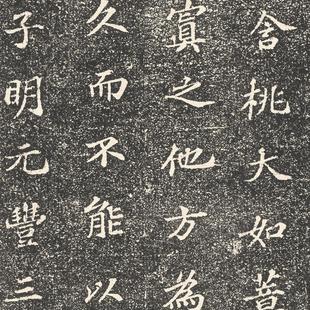 含桃大如薏
寘之他方為
久而不能以
子明元豐三